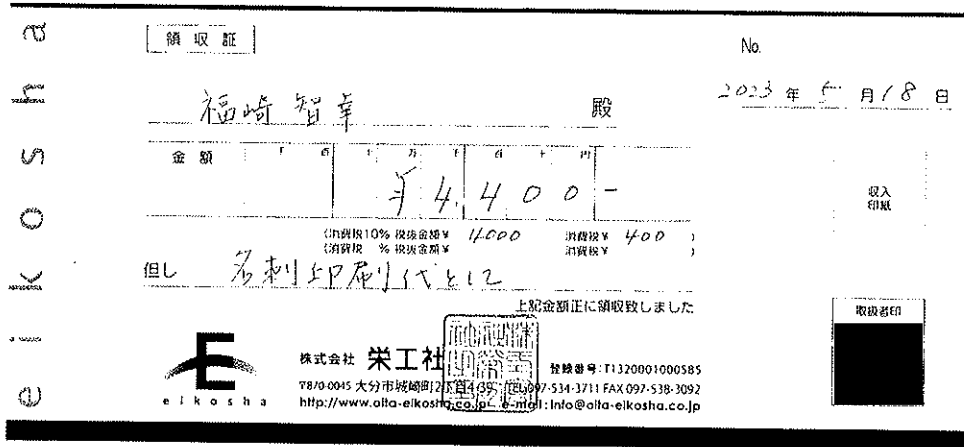 eikosha
領収証
No.
福崎智幸 殿
2023年5月18日
金額 千 百 十 万 千 百 十 円
¥4,400-
収入
印紙
(消費税10% 税抜金額¥ 4000 消費税¥ 400 )
(消費税 % 税抜金額¥ 消費税¥ )
但し 名刺印刷代として
上記金額正に領収致しました
取扱者印
E
eikosha
株式会社 栄工社
登録番号:T1320001000585
〒870-0045 大分市城崎町2丁目4-39 TEL097-534-3711 FAX 097-538-3092
http://www.oita-eikosha.co.jp e-mail:info@oita-eikosha.co.jp